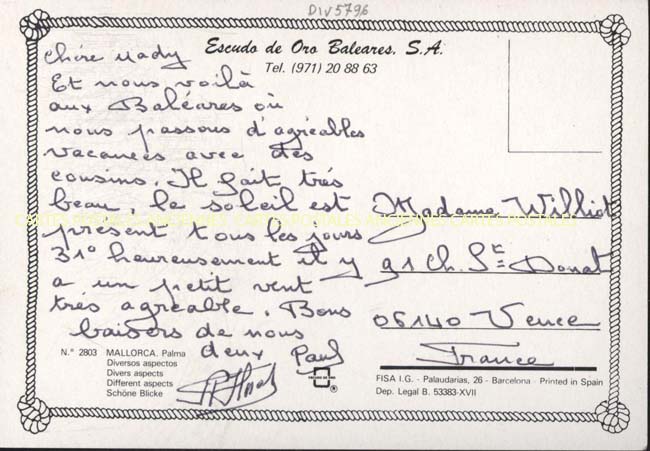 DIV5796
Escudo de Oro Baleares, S.A.
Tel. (971) 20 88 63
Chère Mady
Et nous voilà
aux Baléares où
nous passons d'agréables
vacances avec des
cousins. Il fait très
beau, le soleil est
présent tous les jours
31° heureusement il y
a un petit vent
très agréable. Bons
baisers de nous
deux Paul
Madame Williot
91 Ch. St Donat
06140 Vence
France
N.° 2803 MALLORCA. Palma
Diversos aspectos
Divers aspects
Different aspects
Schöne Blicke
FISA I.G. - Palaudarias, 26 - Barcelona - Printed in Spain
Dep. Legal B. 53383-XVII